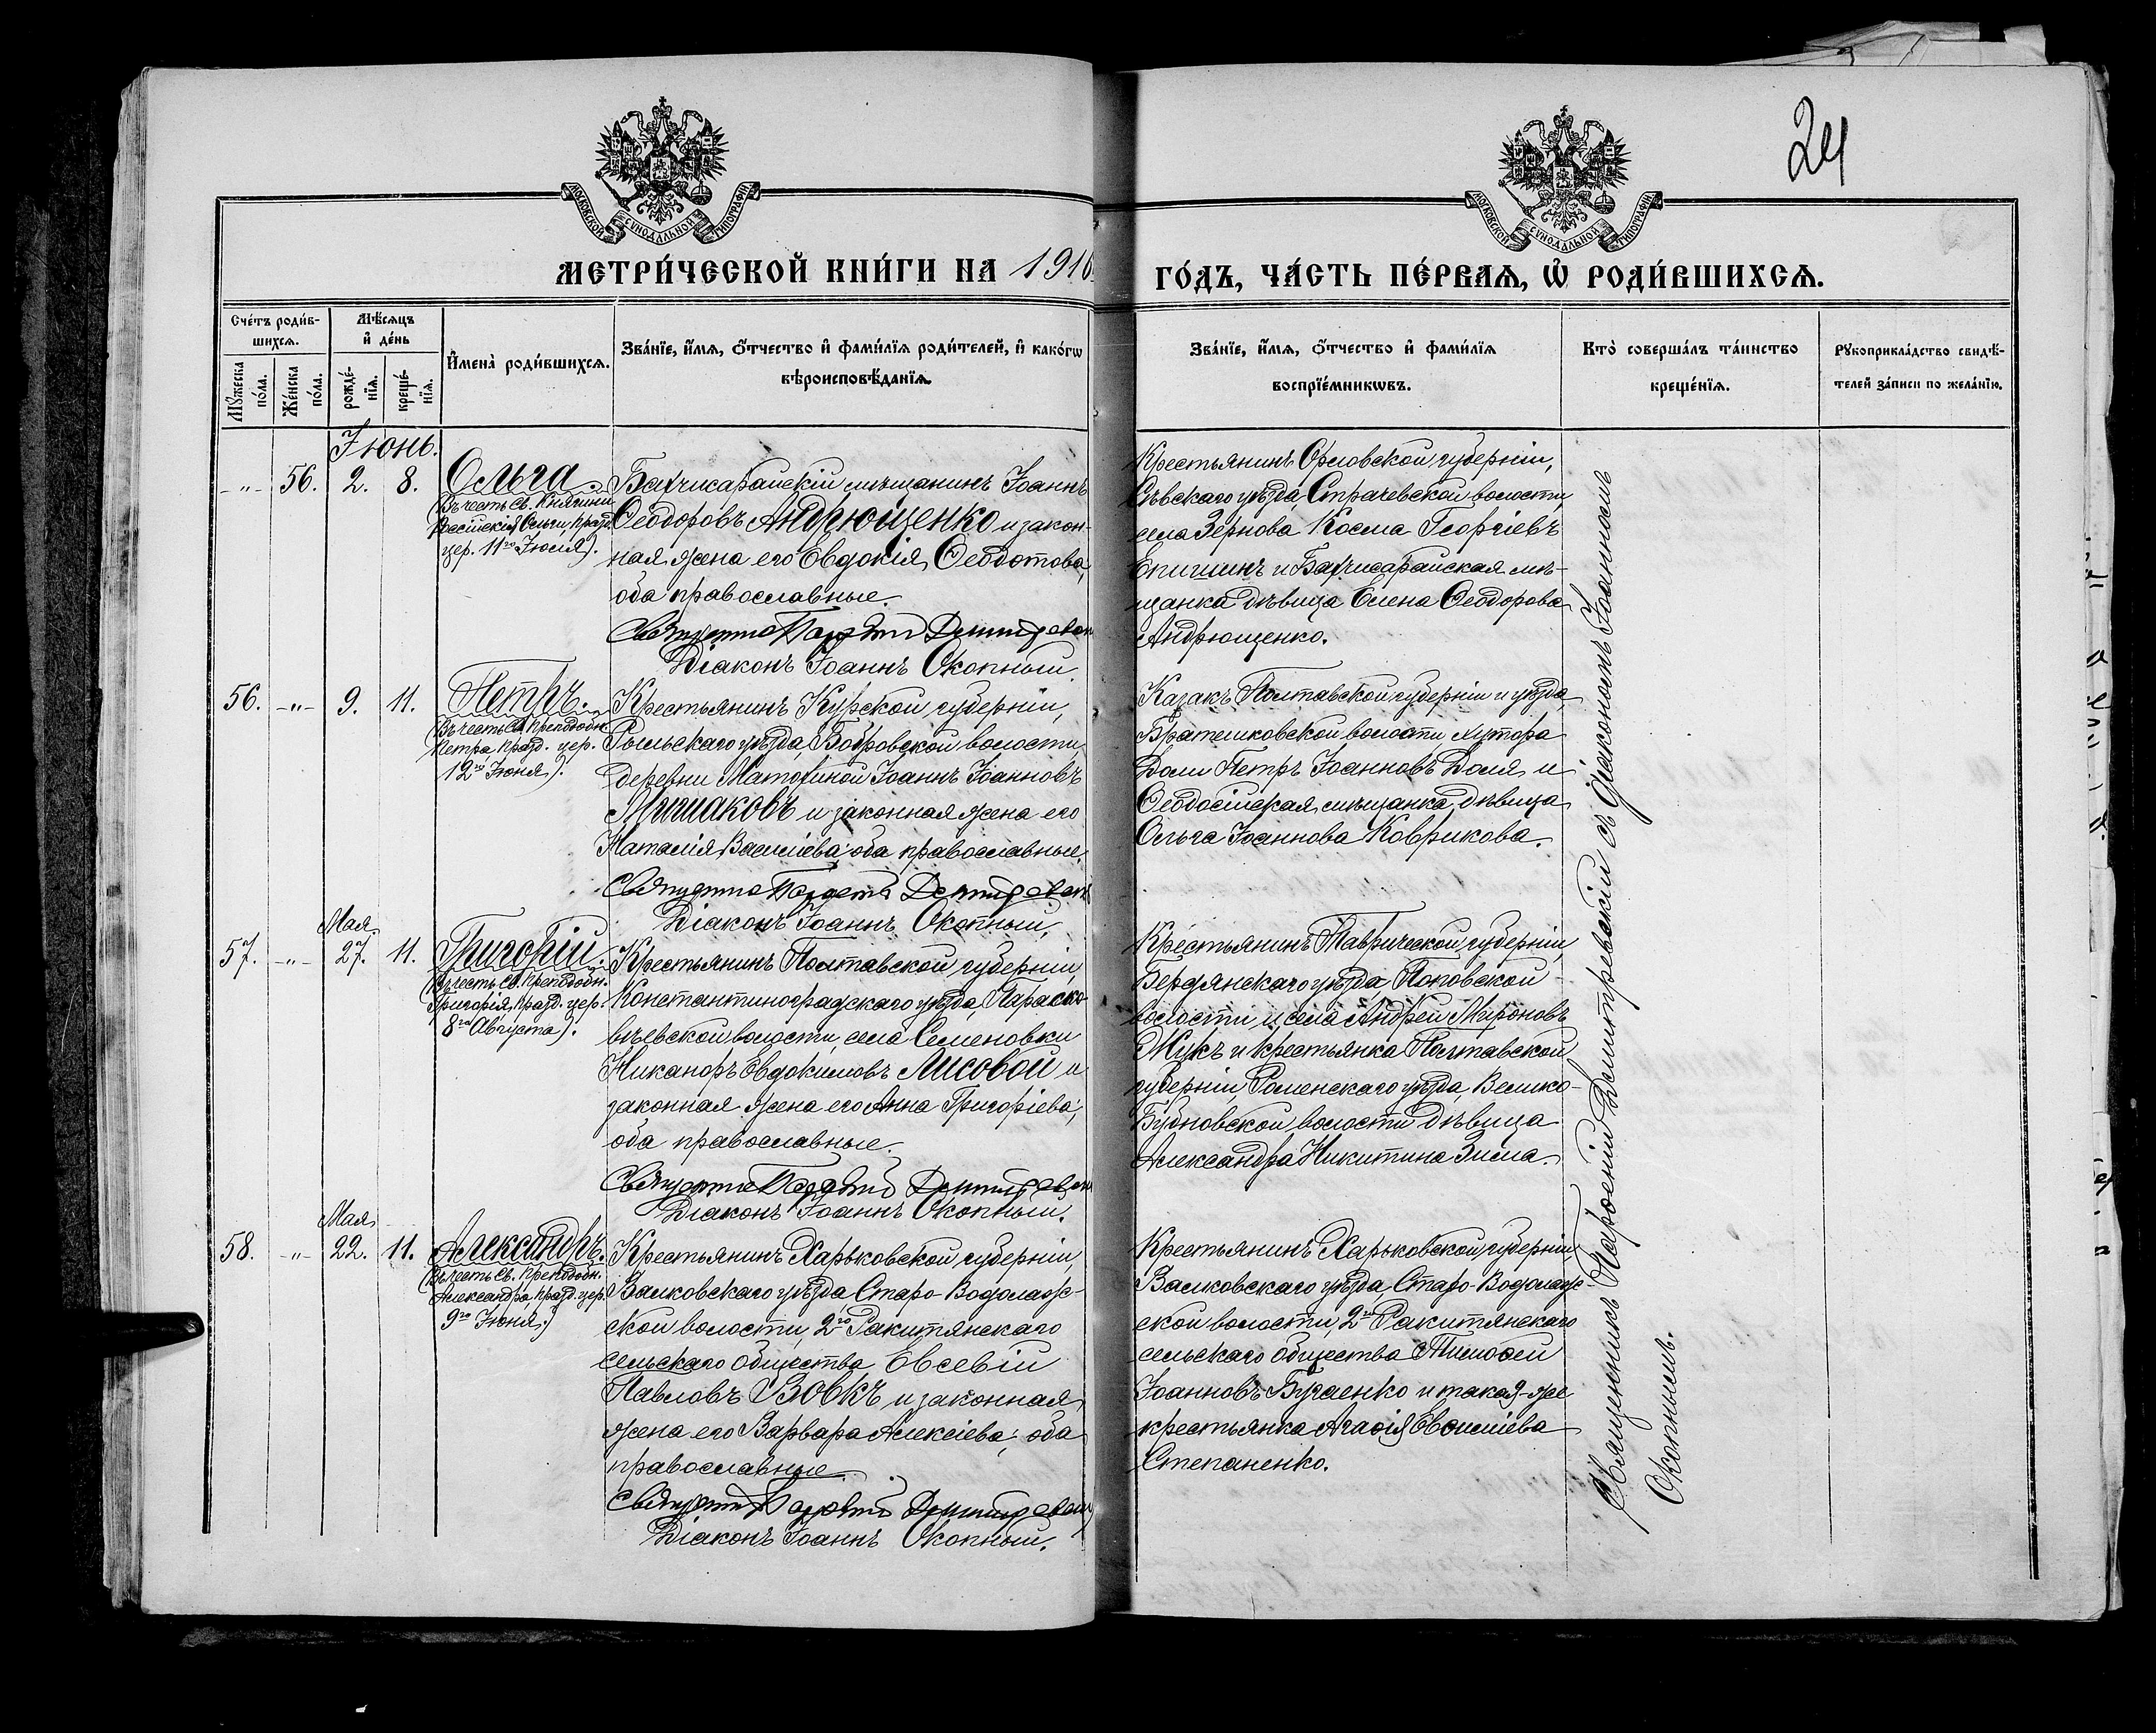 24
МОСКОВСКОЙ СѴНОДАЛЬНОЙ ТИПОГРАФІИ
МОСКОВСКОЙ СѴНОДАЛЬНОЙ ТИПОГРАФІИ
МЕТРИ́ЧЕСКОЙ КНИ́ГИ НА 1916
ГО́ДЪ, ЧА́СТЬ ПЕ́РВАЯ, Ѡ҆ РОДИ́ВШИХСЯ.
Сче́тъ роди́в-
шихся.
Мꙋ́жеска по́ла.
Же́нска по́ла.
Мѣ́сяцъ
и҆ де́нь
рожде́-нїя.
креще́-нїя.
И҆мена̀ роди́вшихся.
Зва́нїе, и҆́мя, ѻ҆́тчество и҆ фами́лїя роди́телей, и҆ како́гѡ
вѣроисповѣ́данїя.
Зва́нїе, и҆́мя, ѻ҆́тчество и҆ фами́лїя
воспрїе́мникѡвъ.
Кто̀ соверша́лъ та́инство
креще́нїя.
Рꙋкоприкла́дство свидѣ́-
телей за́писи по жела́нїю.
Іюнь.
-"- 56. 2. 8.
Ольга
(Въ честь Св. Княгини
Россійскія Ольги, празд.
цер. 11го Іюля).
Бахчисарайскій мѣщанинъ Іоаннъ
Ѳеодоровъ Андрющенко и закон-
ная жена его Евдокія Ѳеодотова,
оба православные.
Священникъ Парѳеній Димитревскій
Діаконъ Іоаннъ Окопный.
Крестьянинъ Орловской губерніи,
Сѣвскаго уѣзда, Страчевской волости,
села Зернова Косма Георгіевъ
Епишинъ и Бахчисарайская мѣ-
щанка дѣвица Елена Ѳеодорова
Андрющенко.
56. -"- 9. 11.
Петръ.
(Въ честь Св. Преподобн.
Петра, празд. цер.
12го Іюня).
Крестьянинъ Курской губерніи,
Рыльскаго уѣзда, Бобровской волости,
деревни Матохиной Іоаннъ Іоанновъ
Мишаковъ и законная жена его
Наталія Василіева оба православные.
Священникъ Парѳеній Димитревскій
Діаконъ Іоаннъ Окопный.
Казакъ Полтавской губерніи и уѣзда,
Братешковской волости, хутора
Доли Петръ Іоанновъ Доля и
Ѳеодосійская мѣщанка дѣвица
Ольга Іоаннова Коврикова.
Мая
57. -"- 27. 11.
Григорій.
(Въ честь Св. Преподобн.
Григорія, празд. цер.
8го Августа).
Крестьянинъ Полтавской губерніи,
Константиноградскаго уѣзда, Параско-
вѣевской волости, села Семеновки
Никаноръ Евдокимовъ Лисовой и
законная жена его Анна Григоріева,
оба православные.
Священникъ Парѳеній Димитревскій
Діаконъ Іоаннъ Окопный.
Крестьянинъ Таврической губерніи,
Бердянскаго уѣзда, Поповской
волости и села Андрей Мироновъ
Жукъ и крестьянка Полтавской
губерніи, Роменскаго уѣзда, Велико-
Бубновской волости дѣвица
Александра Никитина Зима.
Мая
58. -"- 22. 11.
Александръ.
(Въ честь Св. Преподобн.
Александра, празд. цер.
9го Іюня)
Крестьянинъ Харьковской губерніи,
Валковскаго уѣзда, Старо-Водолаж-
ской волости, 2го Ракитянскаго
сельскаго общества Евсевій
Павловъ Вовкъ и законная
жена его Варвара Алексіева, оба
православные.
Священникъ Парѳеній Димитревскій
Діаконъ Іоаннъ Окопный.
Крестьянинъ Харьковской губерніи,
Валковскаго уѣзда, Старо-Водолаж-
ской волости, 2го Ракитянскаго
сельскаго общества Тимоѳей
Іоанновъ Бугаенко и такая-же
крестьянка Агаѳія Евсиміева
Степаненко.
Священникъ Парѳеній Димитревскій съ діакономъ Іоанномъ
Окопнымъ.